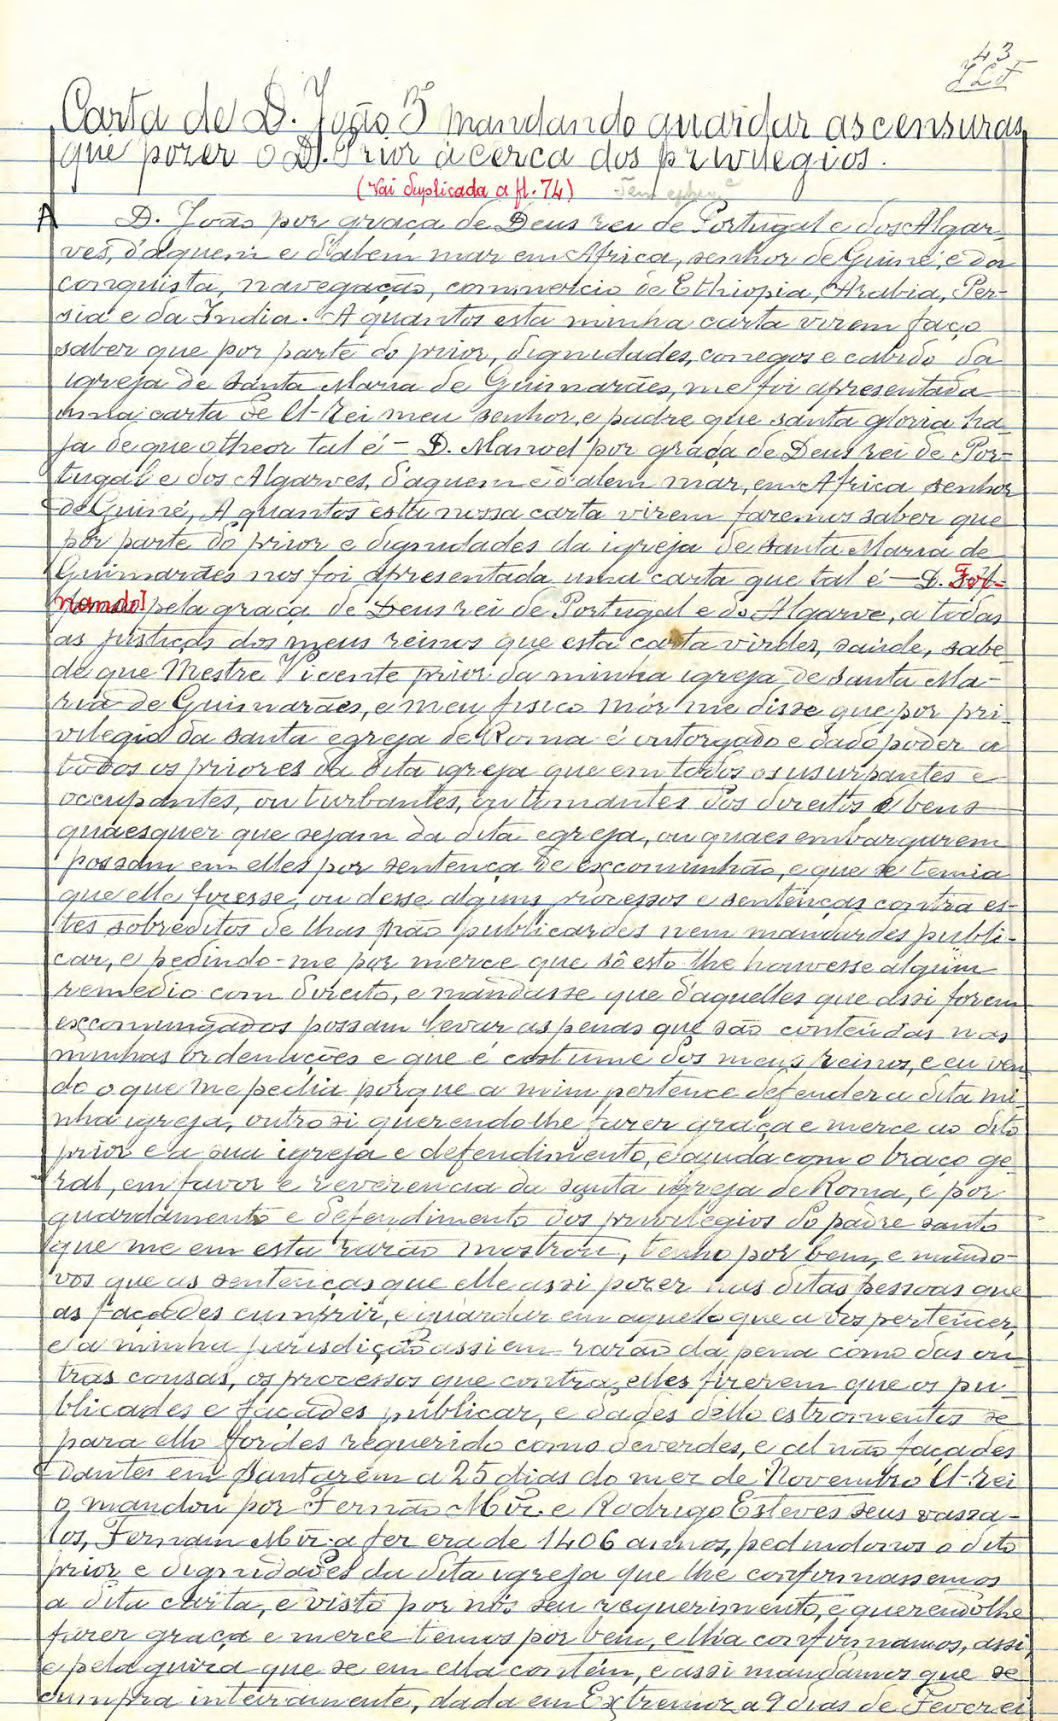 43
Carta de D. João 3º mandando guardar as censuras,
que pozer o D. Prior ácerca dos privilegios.
(Vai duplicada a fl. 74)
A D. João por graça de Deus rei de Portugal e dos Algar-
ves, d'aquem e d'alem mar em Africa, senhor de Guiné, e da
conquista, navegação, commercio de Ethiopia, Arabia, Per-
sia e da India. A quantos esta minha carta virem faço
saber que por parte do prior, dignidades, conegos e cabido da
igreja de Santa Maria de Guimarães, me foi apresentada
uma carta de El-Rei meu senhor, e padre que santa gloria ha-
ja de que o theor tal é — D. Manoel por graça de Deus rei de Por-
tugal e dos Algarves, d'aquem e d'alem mar, em Africa senhor
de Guiné, A quantos esta nossa carta virem faremos saber que
por parte do prior e dignidades da igreja de Santa Maria de
Guimarães nos foi apresentada uma carta que tal é — D. Fer-
nando] pela graça de Deus rei de Portugal e do Algarve, a todas
as justiças dos meus reinos que esta carta virdes, saúde, sabe-
de que Mestre Vicente prior da minha igreja de Santa Ma-
ria de Guimarães, e meu fisico mór me disse que por pri-
vilegio da santa egreja de Roma é outorgado e dado poder a
todos os priores da dita igreja que em todos os usurpantes e
occupantes, ou turbantes, ou tomantes dos direitos e bens
quaesquer que sejam da dita egreja, ou quaes embargarem
possam em elles por sentença de excomunhão, e que se temia
que elle fizesse, ou desse alguns processos e sentenças contra es-
tes sobreditos de lhas não publicardes nem mandardes publi-
car, e pedindo-me por merce que sô esto lhe houvesse algum
remedio com direito, e mandasse que d'aquelles que assi forem
excomungados possam levar as penas que são contendas nas
minhas ordenações e que é costume dos meus reinos, e eu ven-
do o que me pedia porque a mim pertence defender a dita mi-
nha igreja, outro si querendo-lhe fazer graça e merce ao dito
prior e a sua igreja e defendimento, e ajuda com o braço ge-
ral, em favor e reverencia da santa igreja de Roma, e por
guardamento e defendimento dos privilegios do padre santo
que me em esta razão mostrou, tenho por bem, e mando-
vos que as sentenças que elle assi pozer nas ditas pessoas que
as façades cumprir, e guardar em aquelo que a vos pertencer,
e a minha jurisdição assi em razão da pena como das ou-
tras cousas, os processos que contra elles fizerem que os pu-
blicades e façades publicar, e dades dello estromentos se
para ello fordes requerido como deverdes, e al não façades
dantes em Santarém a 25 dias do mez de Novembro El-Rei
o mandou por Fernão Miz. e Rodrigo Esteves seus vassa-
los, Fernam Miz. a fez era de 1406 annos, pedindonos o dito
prior e dignidades da dita igreja que lhe confirmassemos
a dita carta, e visto por nós seu requerimento, e querendolhe
fazer graça e merce temos por bem, e lha confirmamos, assi,
e pela guiza que se em ella contém, e assi mandamos que se
cumpra inteiramente, dada em Extremoz a 9 dias de Feverei